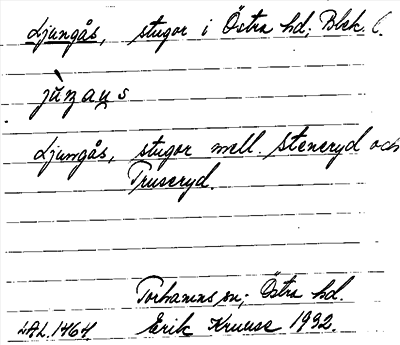 Ljungås, stugor i Östra hd; Blek. l.
jùŋaųs
Ljungås, stugor mell. Steneryd och
Truseryd.
Torhamns sn; Östra hd.
LAL.1464. Erik Kruuse 1932.